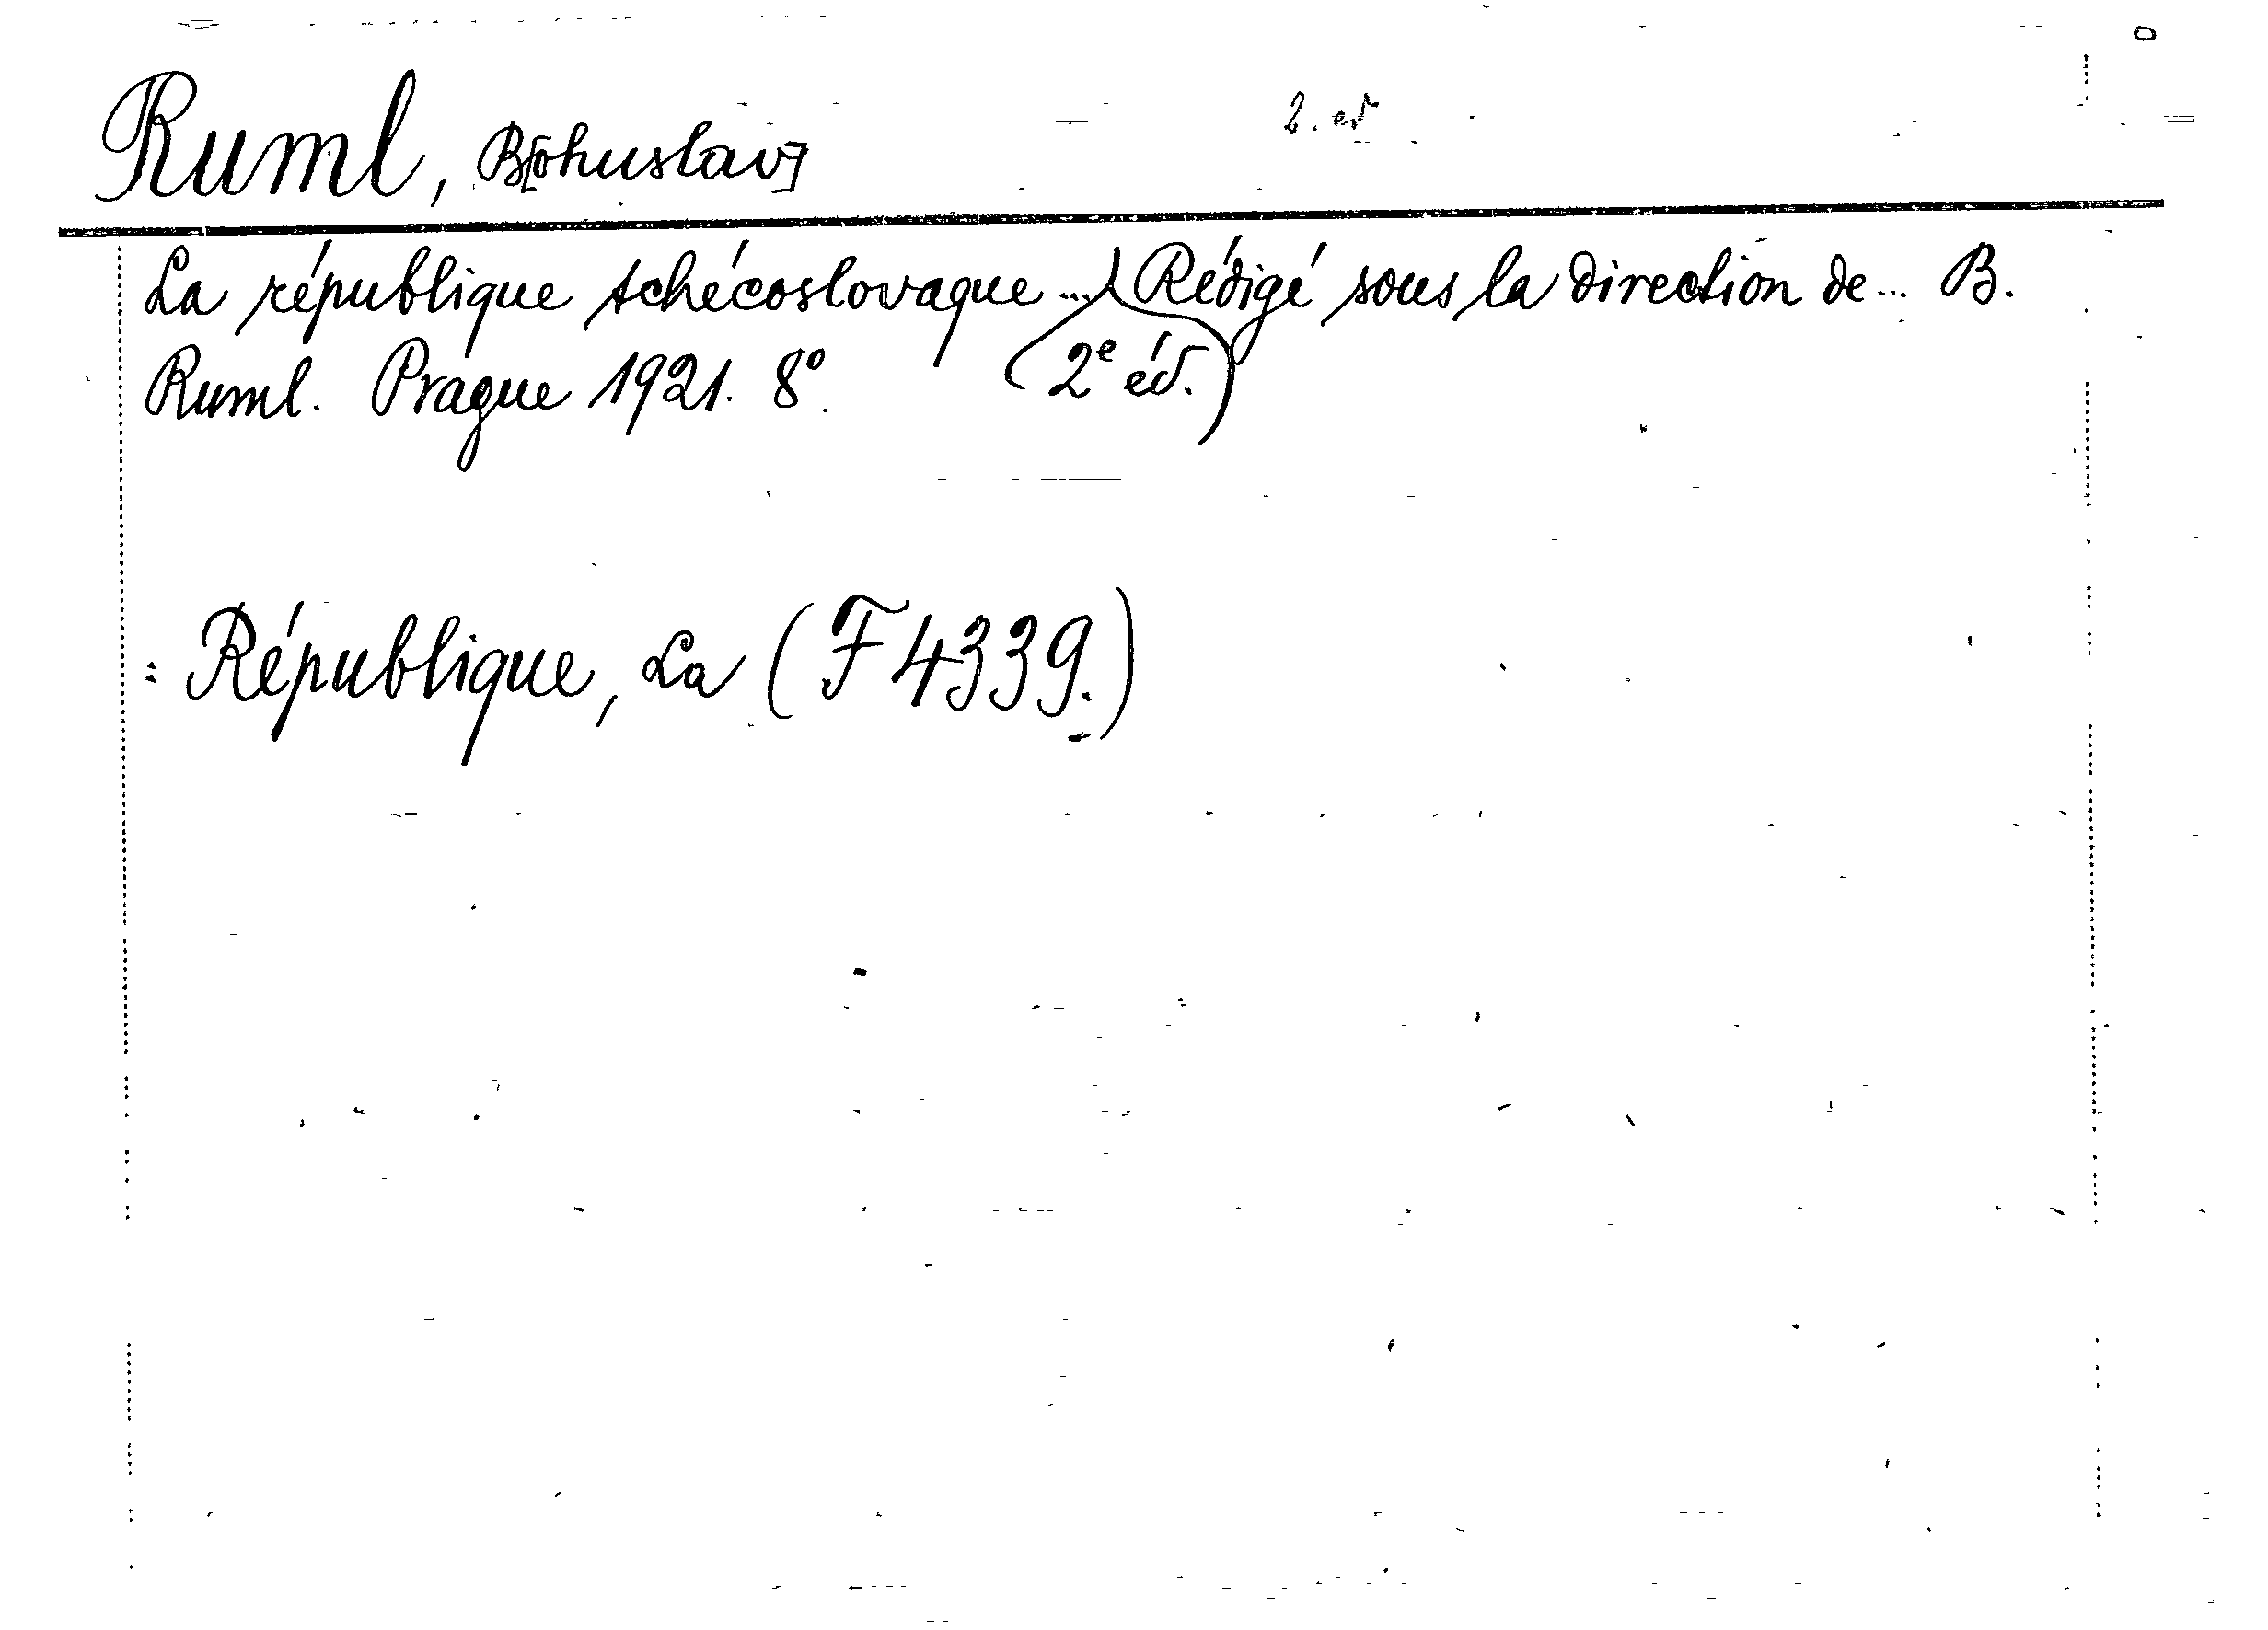 2. ed
Ruml, B[ohuslav]
La république tchécoslovaque ... Rédigé sous la direction de ... B.
(2e éd.)
Ruml. Prague 1921. 8°.
: République, La (F 4339.)